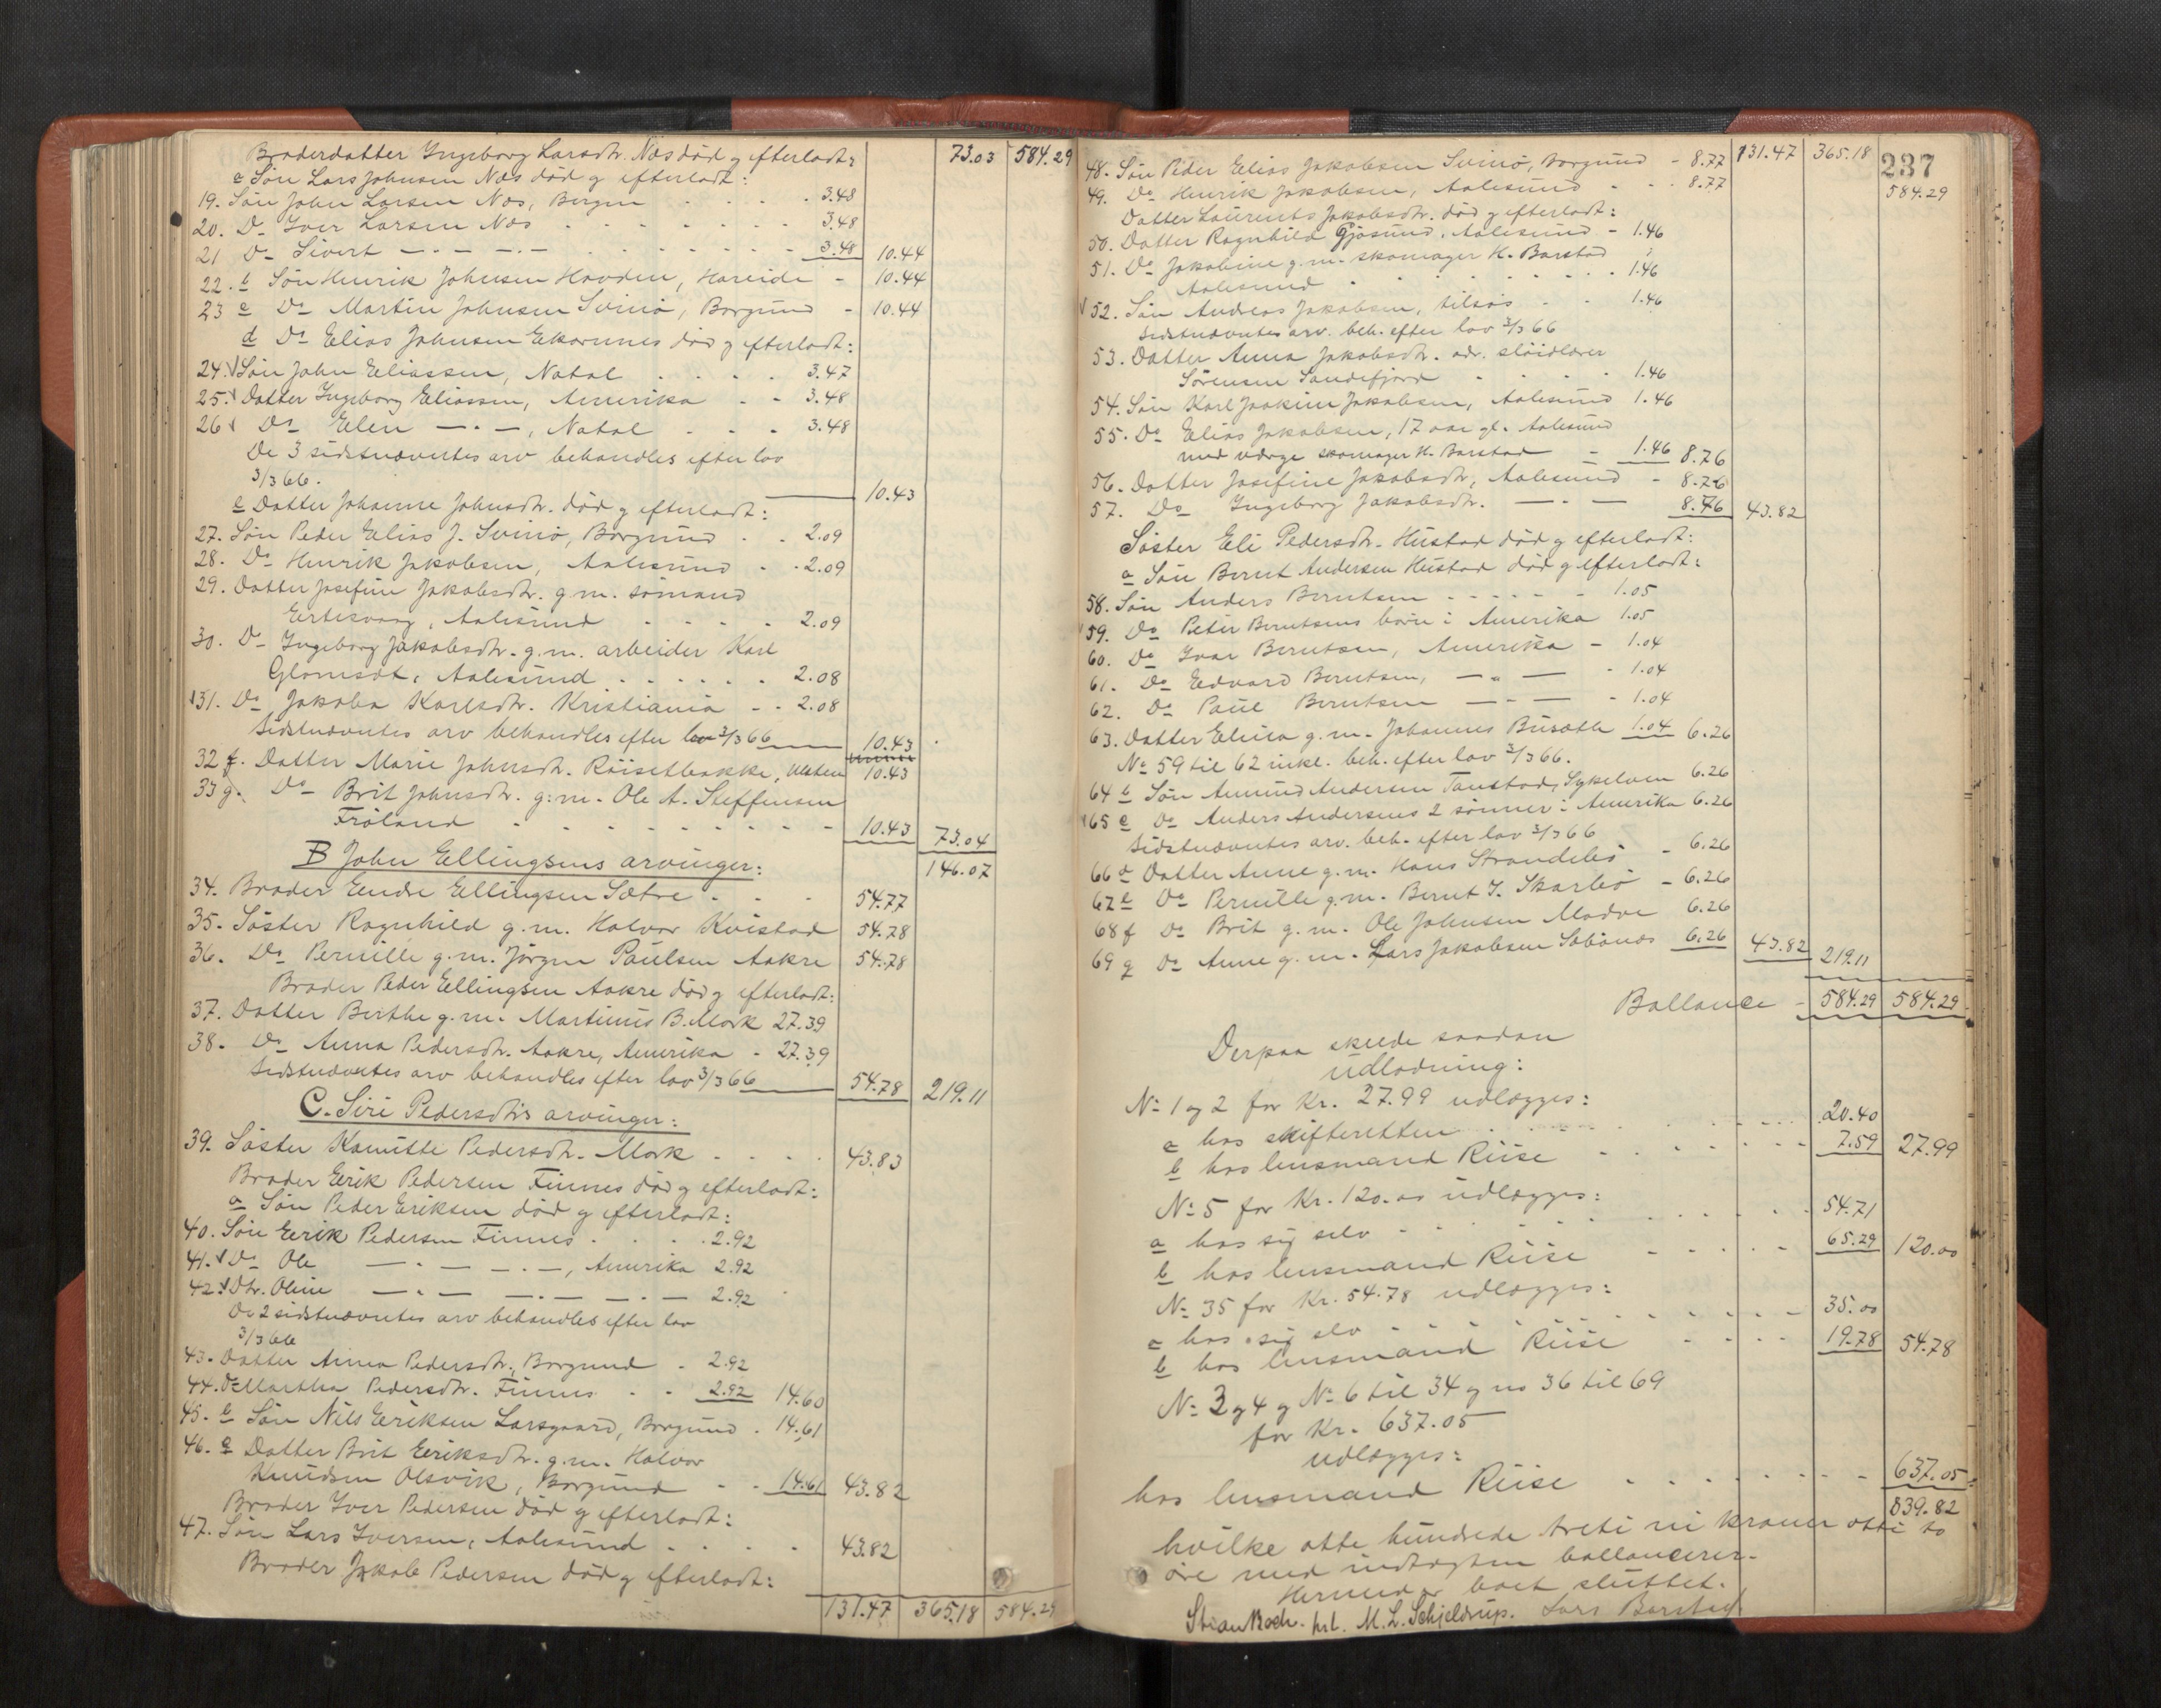 Broderdatter Ingeborg Larsdtr. Næs død og efterladt: 73.03 584.29
a Søn Lars Johnsen Næs død og efterladt:
19. Søn John Larsen Næs, Bergen 3.48
20. Do Iver Larsen Næs 3.48
21 Do Sivert — - — - — 3.48 10.44
22. b Søn Henrik Johnsen Hovden, Hareide - 10.44
23 c Do Martin Johnsen Svinø, Borgund - 10.44
d Do Elias Johnsen Ekornnes død og efterladt:
24. √ Søn John Eliassen, Natal 3.47
25. √ Datter Ingeborg Eliassen, Amerika - - 3.48
26 √ Do Elen — - —, Natal 3.48
De 3 sidstnævntes arv behandles efter lov
3/3 66. 10.43
e Datter Johanne Johnsdtr. død og efterladt:
27. Søn Peder Elias J. Svinø, Borgund - - 2.09
28. Do Henrik Jakobsen, Aalesund - - 2.09
29. Datter Josefine Jakobsdtr. g.m. sømand
Eertesvaag, Aalesund 2.09
30. Do Ingeborg Jakobsdtr. g.m. arbeider Karl
Glomset, Aalesund 2.08
√31. Do Jakoba Karlsdtr. Kristiania - - 2.08
Sidstnævntes arv behandles efter lov 3/3 66 10.43
32 f. Datter Marie Johnsdtr. Röisetbakke, Ulsten 10.43
33 g. Do Brit Johnsdtr. g.m. Ole A. Steffensen
Fröland 10.43 73.04
B John Ellingsens arvinger: 146.07
34. Broder Endre Ellingsen Sætre 54.77
35. Søster Ragnhild g.m. Halvor Kvistad 54.78
36. Do Pernille g.m. Jørgen Paulsen Aakre 54.78
Broder Peder Ellingsen Aakre død og efterladt:
37. Datter Berthe g.m. Martinus B. Mork 27.39
38. Do Anna Pedersdtr. Aakre, Amerika - 27.39
Sidstnævntes arv behandles efter lov 3/3 66 54.78 219.11
C. Siri Pedersdtrs arvinger:
39. Søster Kamitte Pedersdtr. Mork 43.83
Broder Eerik Pedersen Finnes død og efterladt:
a Søn Peder Eriksen død og efterladt:
40. Søn Eerik Pedersen Finnes 2.92
41. √ Do Ole — - — — - —, Amerika 2.92
42. √ Dtr. Oline — - — — - — — - — 2.92
De 2 sidstnævntes arv behandles efter lov
3/3 66
43. Datter Anna Pedersdtr., Borgund - 2.92
44. Do Martha Pedersdtr. Finnes - - 2.92 14.60
45. b Søn Nils Eeriksen Larsgaard, Borgund - 14.61
46. c Datter Brit Eeriksdtr. g.m. Halvor
Knudsen Olsvik, Borgund - - 14.61 43.82
Broder Iver Pedersen død og efterladt:
47. Søn Lars Iversen, Aalesund 43.82
Broder Jakob Pedersen død og efterladt:
131.47 365.18 584.29
237
48. Søn Peder Elias Jakobsen Svinø, Borgund - 8.77 131.47 365.18
49. Do Henrik Jakobsen, Aalesund 8.77 584.29
Datter Laurents Jakobsdtr. død og efterladt:
50. Datter Ragnhild Gjøsund, Aalesund - 1.46
51. Do Jakobine g.m. skomager H. Barstad
Aalesund 1.46
√ 52. Søn Andreas Jakobsen, tilsøs - - 1.46
Sidstnævntes arv. beh. efter lov 3/3 66
53. Datter Anna Jakobsdtr. adr. sløidlærer
Sørensen Sandefjord 1.46
54. Søn Karl Joakim Jakobsen, Aalesund 1.46
55. Do Elias Jakobsen, 17 aar gl. Aalesund
med værge skomager H. Barstad - 1.46 8.76
56. Datter Josefine Jakobsdtr, Aalesund - 8.76
57. Do Ingeborg Jakobsdtr. — - — 8.76 43.82
Søster Eli Pedersdtr. Hustad død og efterladt:
a Søn Bernt Andersen Hustad død og efterladt:
58. Søn Anders Berntsen 1.05
√ 59. Do Peter Berntsens børn i Amerika 1.05
60. Do Ivar Berntsen, Amerika - 1.04
61. Do Edvard Berntsen, — " — - 1.04
62. Do Paul Berntsen — - — - 1.04
63. Datter Elina g.m. Johannes Busæth 1.04 6.26
No 59 til 62 inkl. beh. efter lov 3/3 66.
64 b Søn Amund Andersen Tanstad, Sykelven 6.26
√65 c Do Anders Andersens 2 sønner i Amerika 6.26
Sidstnævntes arv. beh. efter lov 3/3 66
66 d Datter Anne g.m. Hans Strandebø - 6.26
67 e Do Pernille g.m. Bernt I. Skarbø - 6.26
68 f Do Brit g.m. Ole Johnsen Madve 6.26
69 g Do Anne g.m. Lars Jakobsen Søbønæs 6.26 43.82 219.11
Ballance - 584.29 584.29
Derpaa skede saadan
udlodning:
No 1 og 2 for Kr. 27.99 udlægges:
a hos skifteretten 20.40
b hos lensmand Riise 7.59 27.99
No 5 for Kr. 120.00 udlægges:
a hos sig selv 54.71
b hos lensmand Riise 65.29 120.00
No 35 for Kr. 54.78 udlægges:
a hos sig selv 35.00
b hos lensmand Riise 19.78 54.78
No 3 og 4 og No 6 til 34 og no 36 til 69
for Kr. 637.05
udlægges:
hos lensmand Riise 637.05
839.82
hvilke otte hundrede treti ni kroner otti to
øre med indtægten ballancerer.
Hermed er boet sluttet.
M. L. Schjelderup. Lars Barstad